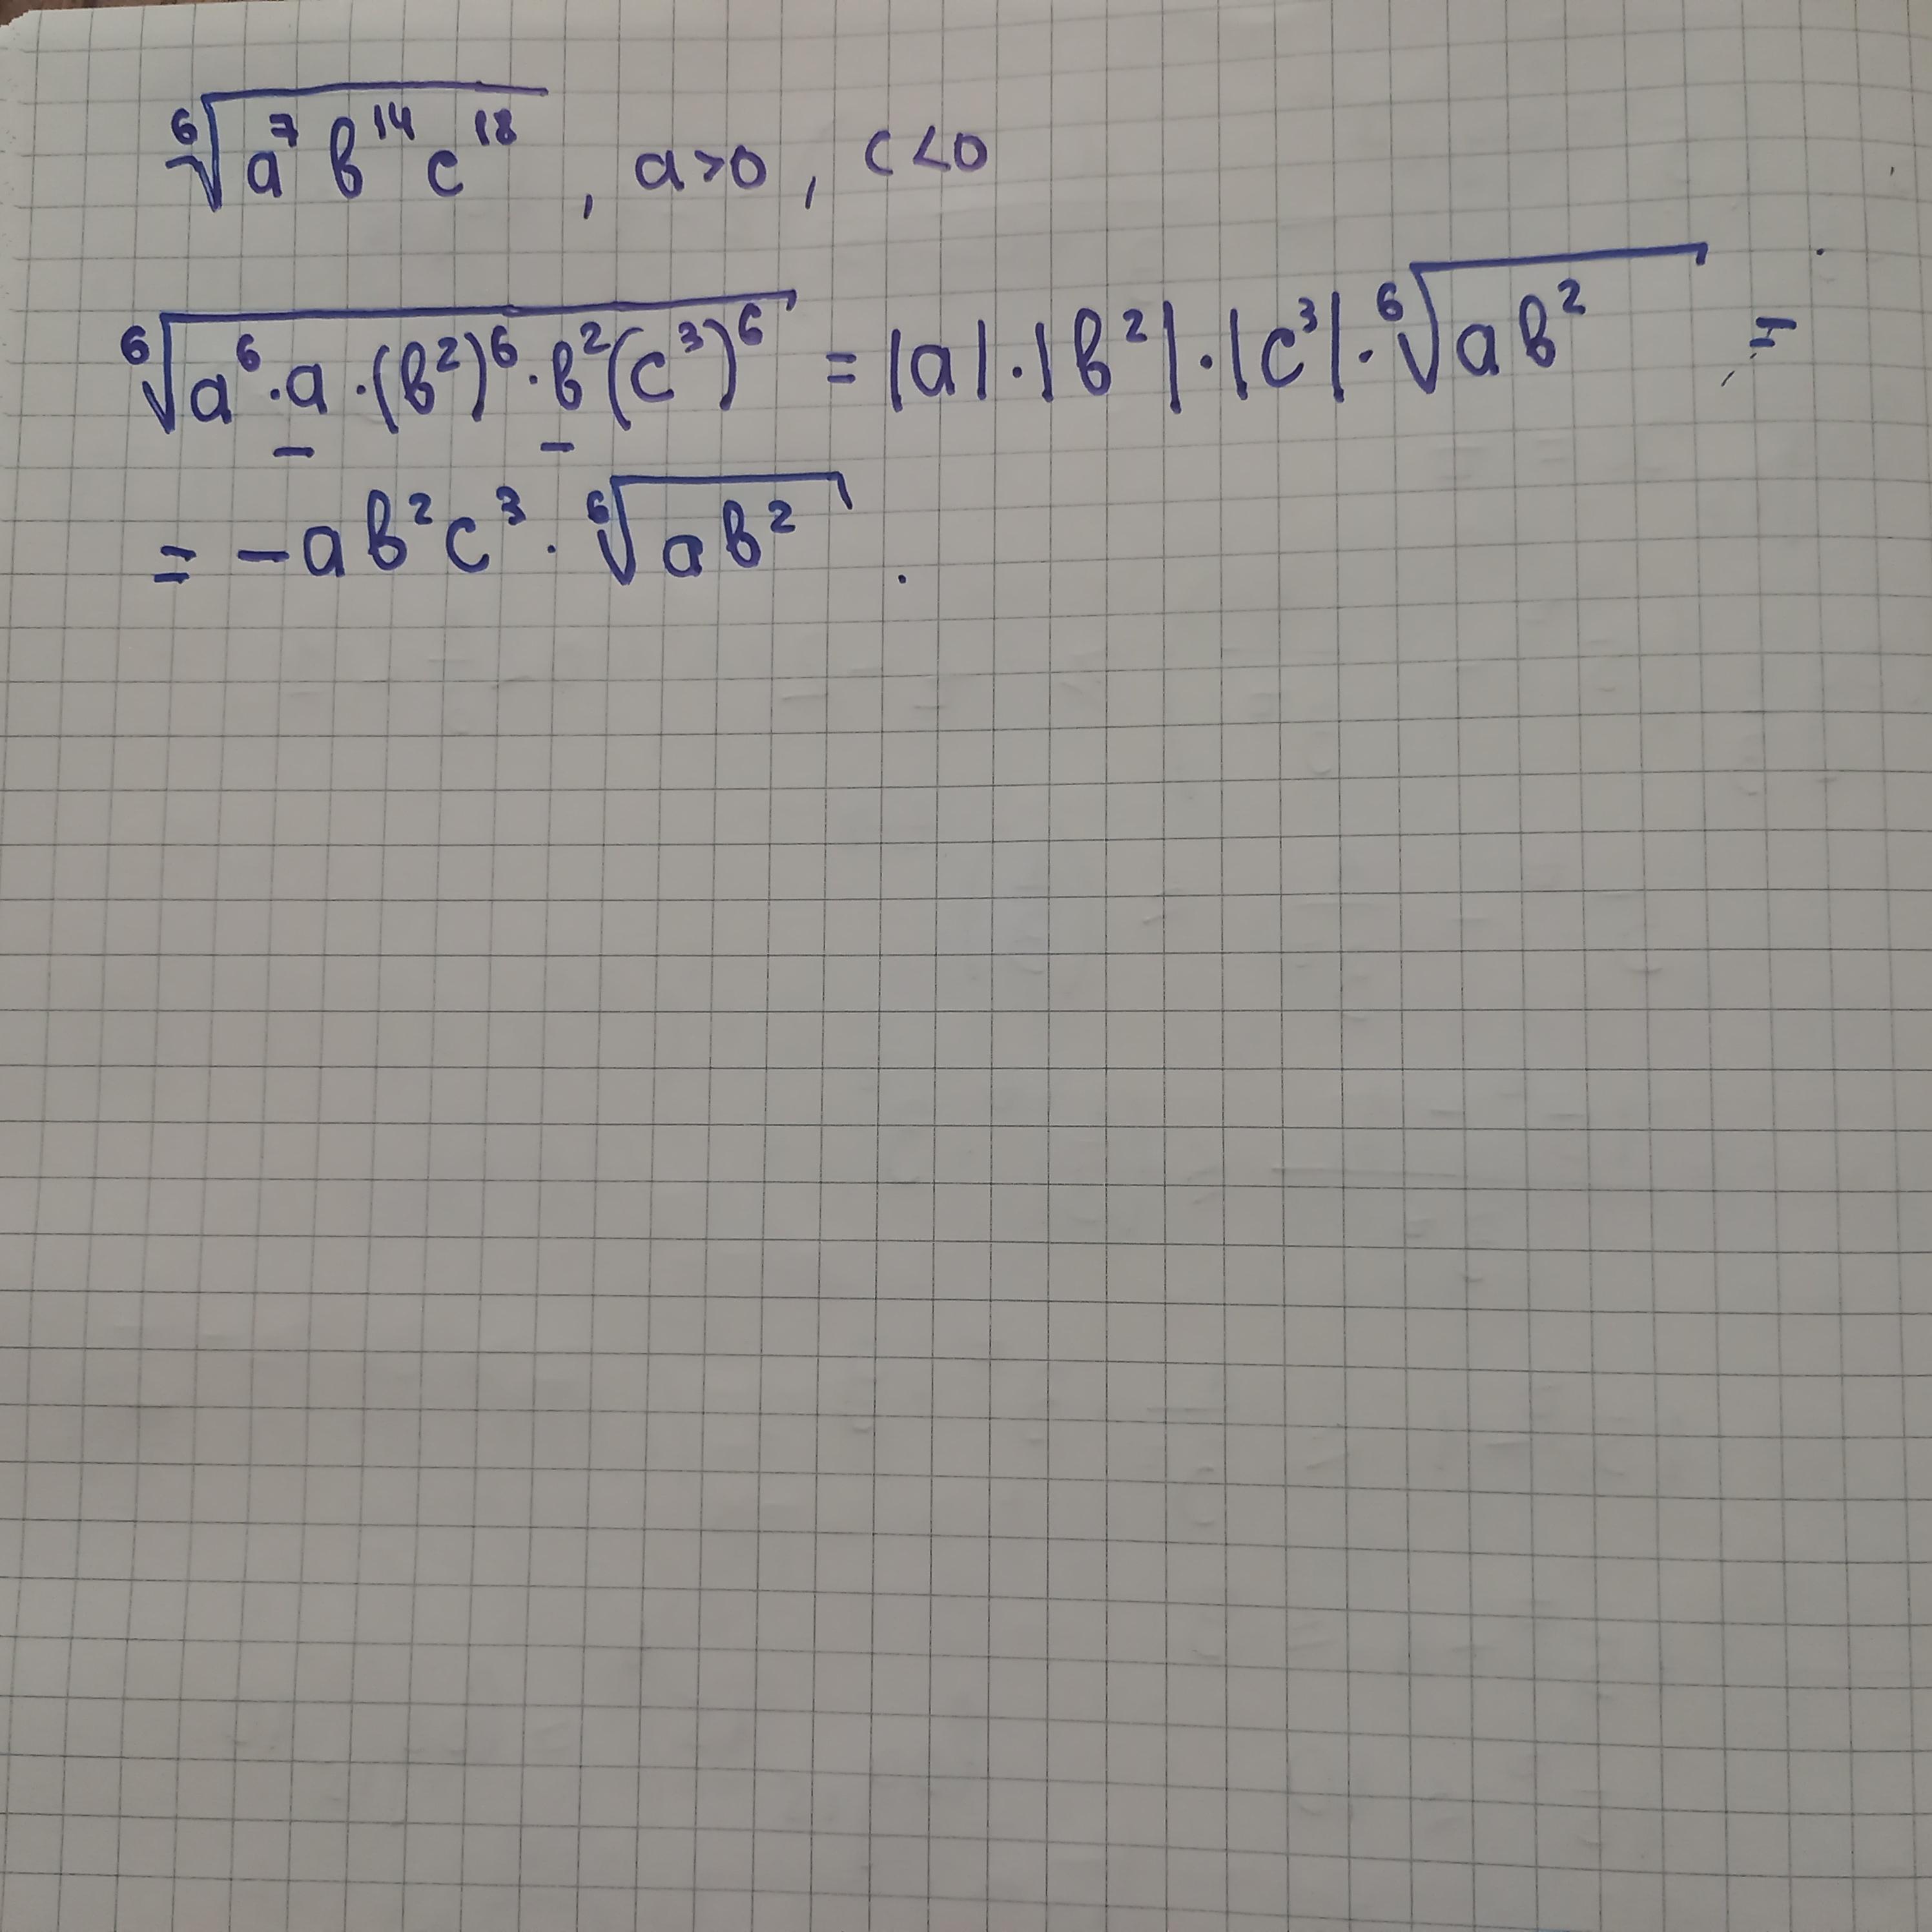 ⁶√(a⁷ b¹⁴ c¹⁸) , a>0 , c<0
⁶√(a⁶·a·(b²)⁶·b²(c³)⁶) = |a|·|b²|·|c³|·⁶√(ab²) =
= -ab²c³ · ⁶√(ab²) .